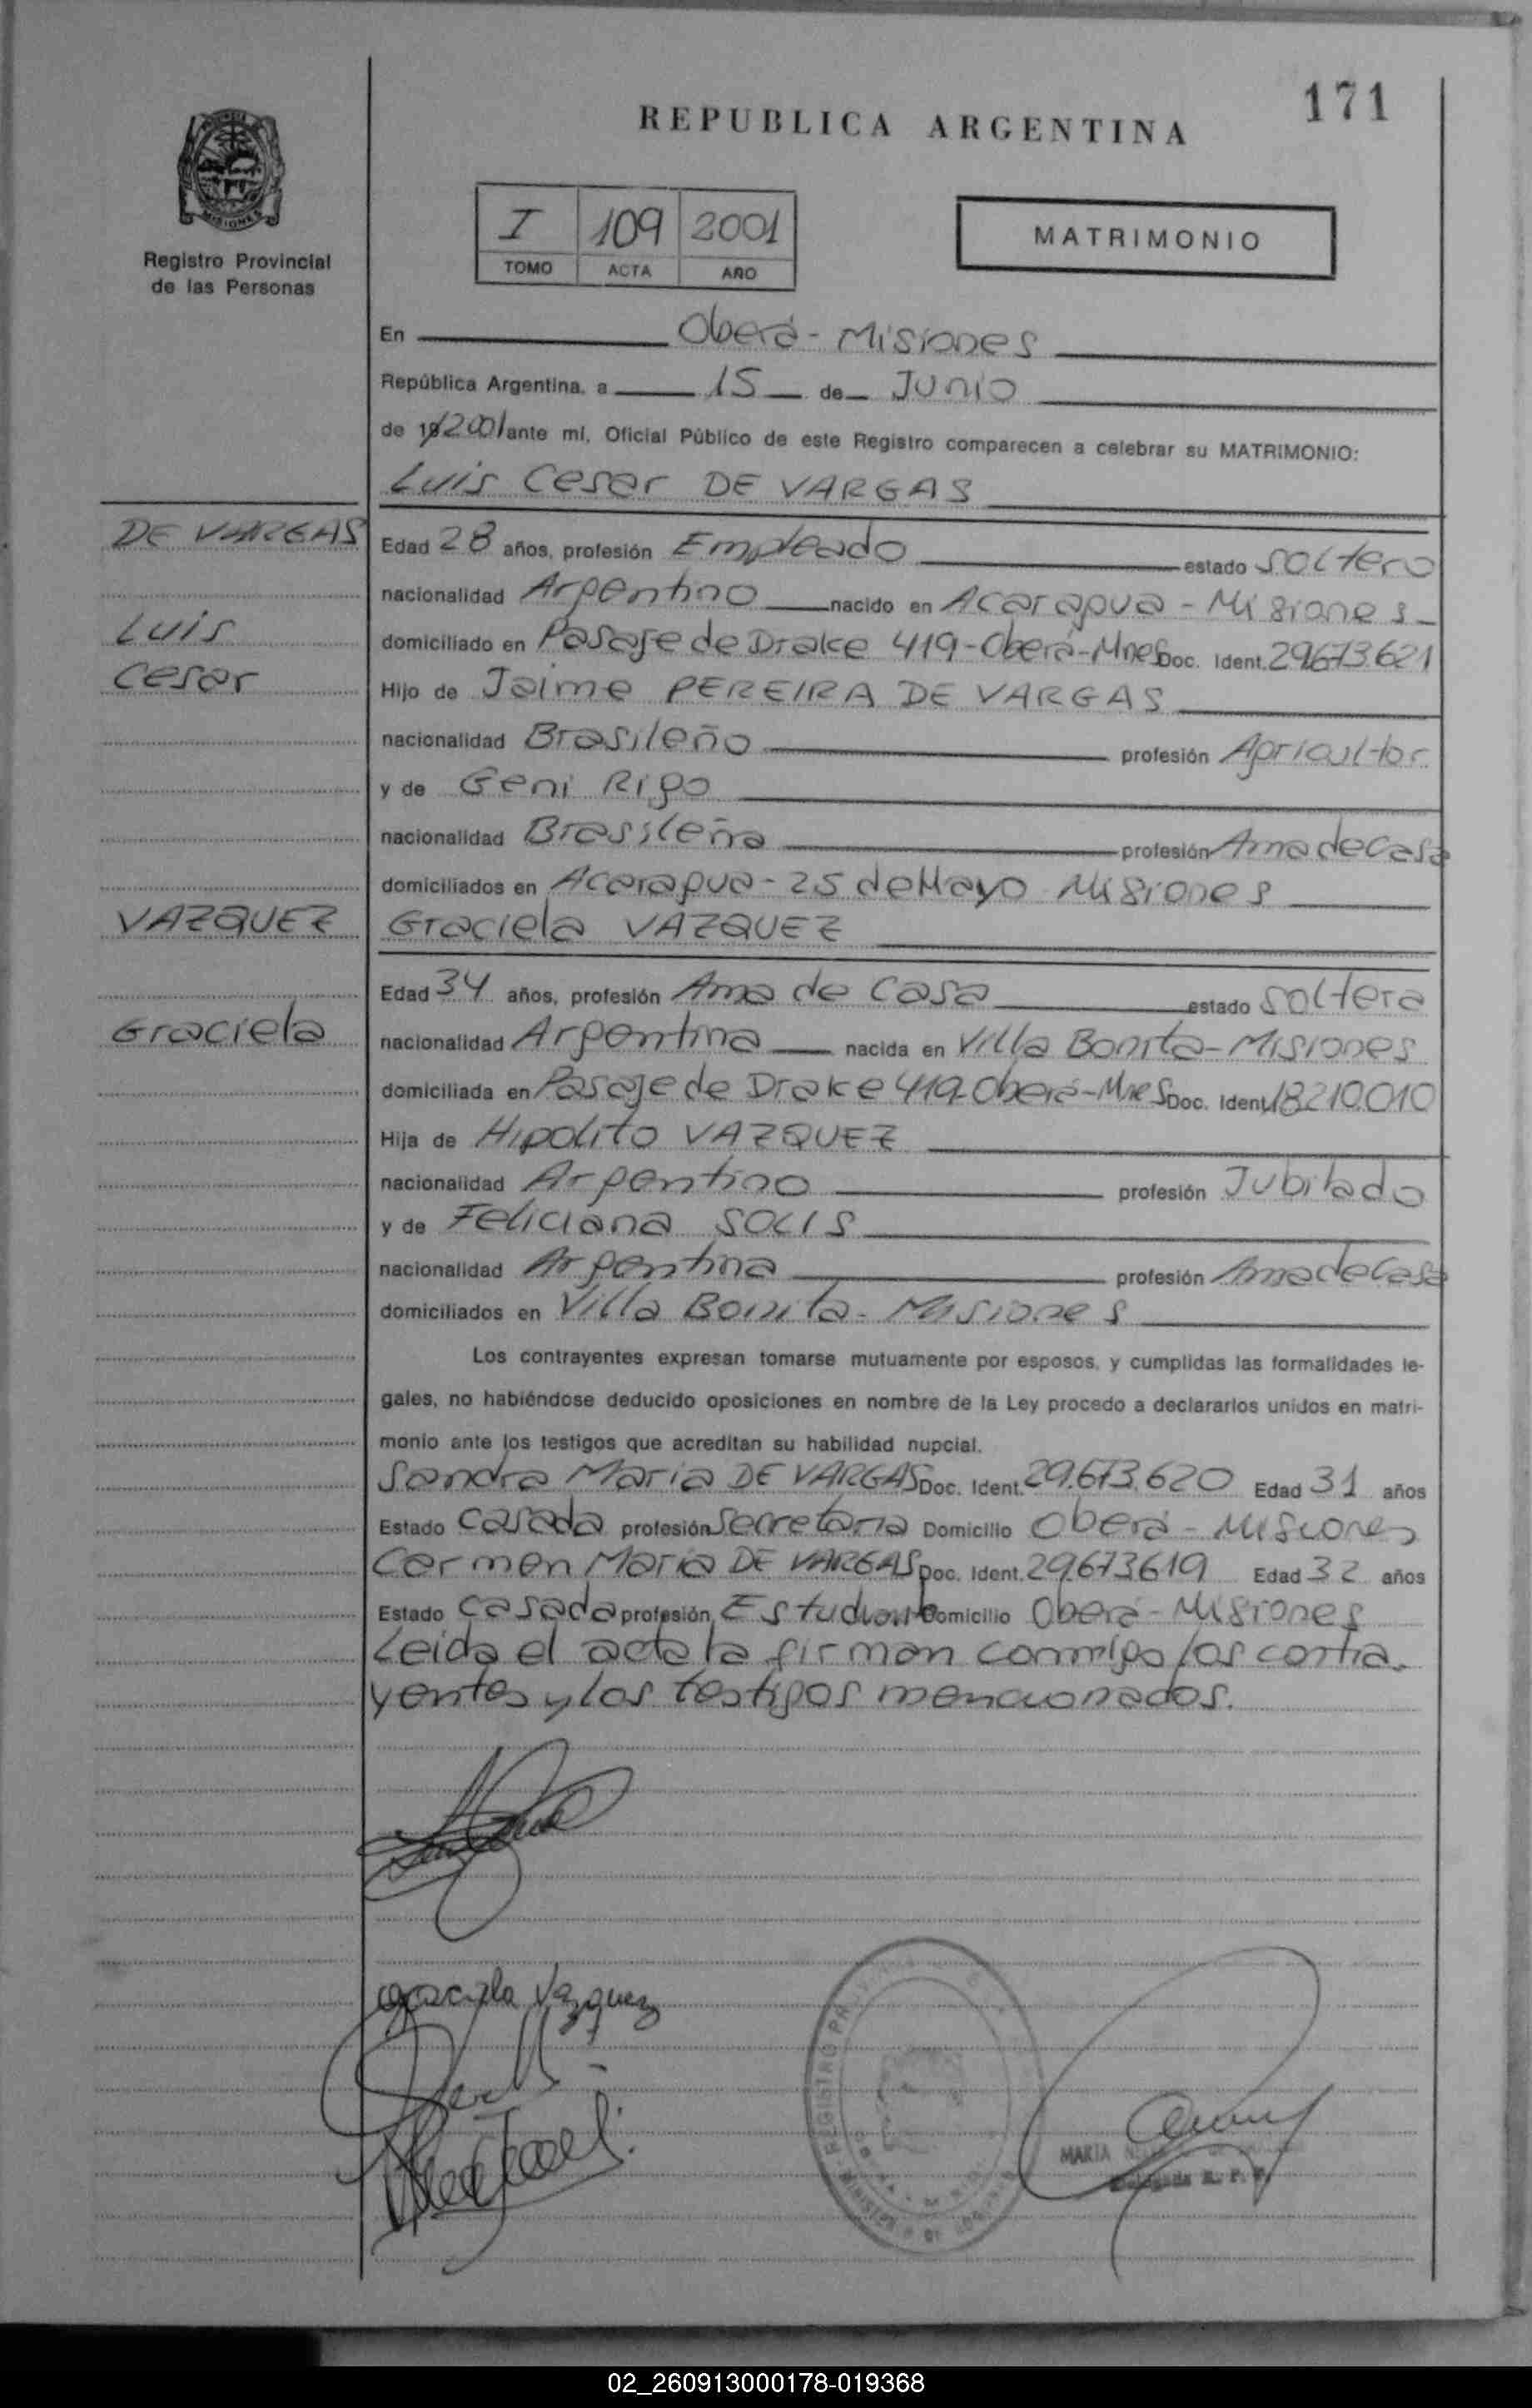 171
REPUBLICA ARGENTINA
MISIONES
Registro Provincial
de las Personas
I 109 2001
TOMO ACTA AÑO
MATRIMONIO
En Oberá - Misiones
República Argentina, a 15 de Junio
de 19/2001 ante mí, Oficial Público de este Registro comparecen a celebrar su MATRIMONIO:
Luis Cesar DE VARGAS
DE VARGAS
Luis
Cesar
Edad 28 años, profesión Empleado estado Soltero
nacionalidad Argentino nacido en Acaragua - Misiones
domiciliado en Pasaje de Drake 419 - Oberá - Mnes Doc. Ident. 29.673.621
Hijo de Jaime PEREIRA DE VARGAS
nacionalidad Brasileño profesión Agricultor
y de Geni Rigo
nacionalidad Brasileña profesión Ama de Casa
domiciliados en Acaragua - 25 de Mayo Misiones
VAZQUEZ
Graciela
Graciela VAZQUEZ
Edad 34 años, profesión Ama de Casa estado Soltera
nacionalidad Argentina nacida en Villa Bonita - Misiones
domiciliada en Pasaje de Drake 419 - Oberá - Mnes Doc. Ident. 18210.010
Hija de Hipolito VAZQUEZ
nacionalidad Argentino profesión Jubilado
y de Feliciana SOLIS
nacionalidad Argentina profesión Ama de Casa
domiciliados en Villa Bonita - Misiones
Los contrayentes expresan tomarse mutuamente por esposos, y cumplidas las formalidades le-
gales, no habiéndose deducido oposiciones en nombre de la Ley procedo a declararlos unidos en matri-
monio ante los testigos que acreditan su habilidad nupcial.
Sandra Maria DE VARGAS Doc. Ident. 29.673.620 Edad 31 años
Estado Casada profesión Secretaria Domicilio Oberá - Misiones
Carmen Maria DE VARGAS Doc. Ident. 29.673619 Edad 32 años
Estado Casada profesión Estudiante Domicilio Oberá - Misiones
Leida el acta la firman conmigo los contra-
yentes y los testigos mencionados.
Graciela Vazquez
REGISTRO
MARIA
Delegada R. P. P.
02_260913000178-019368